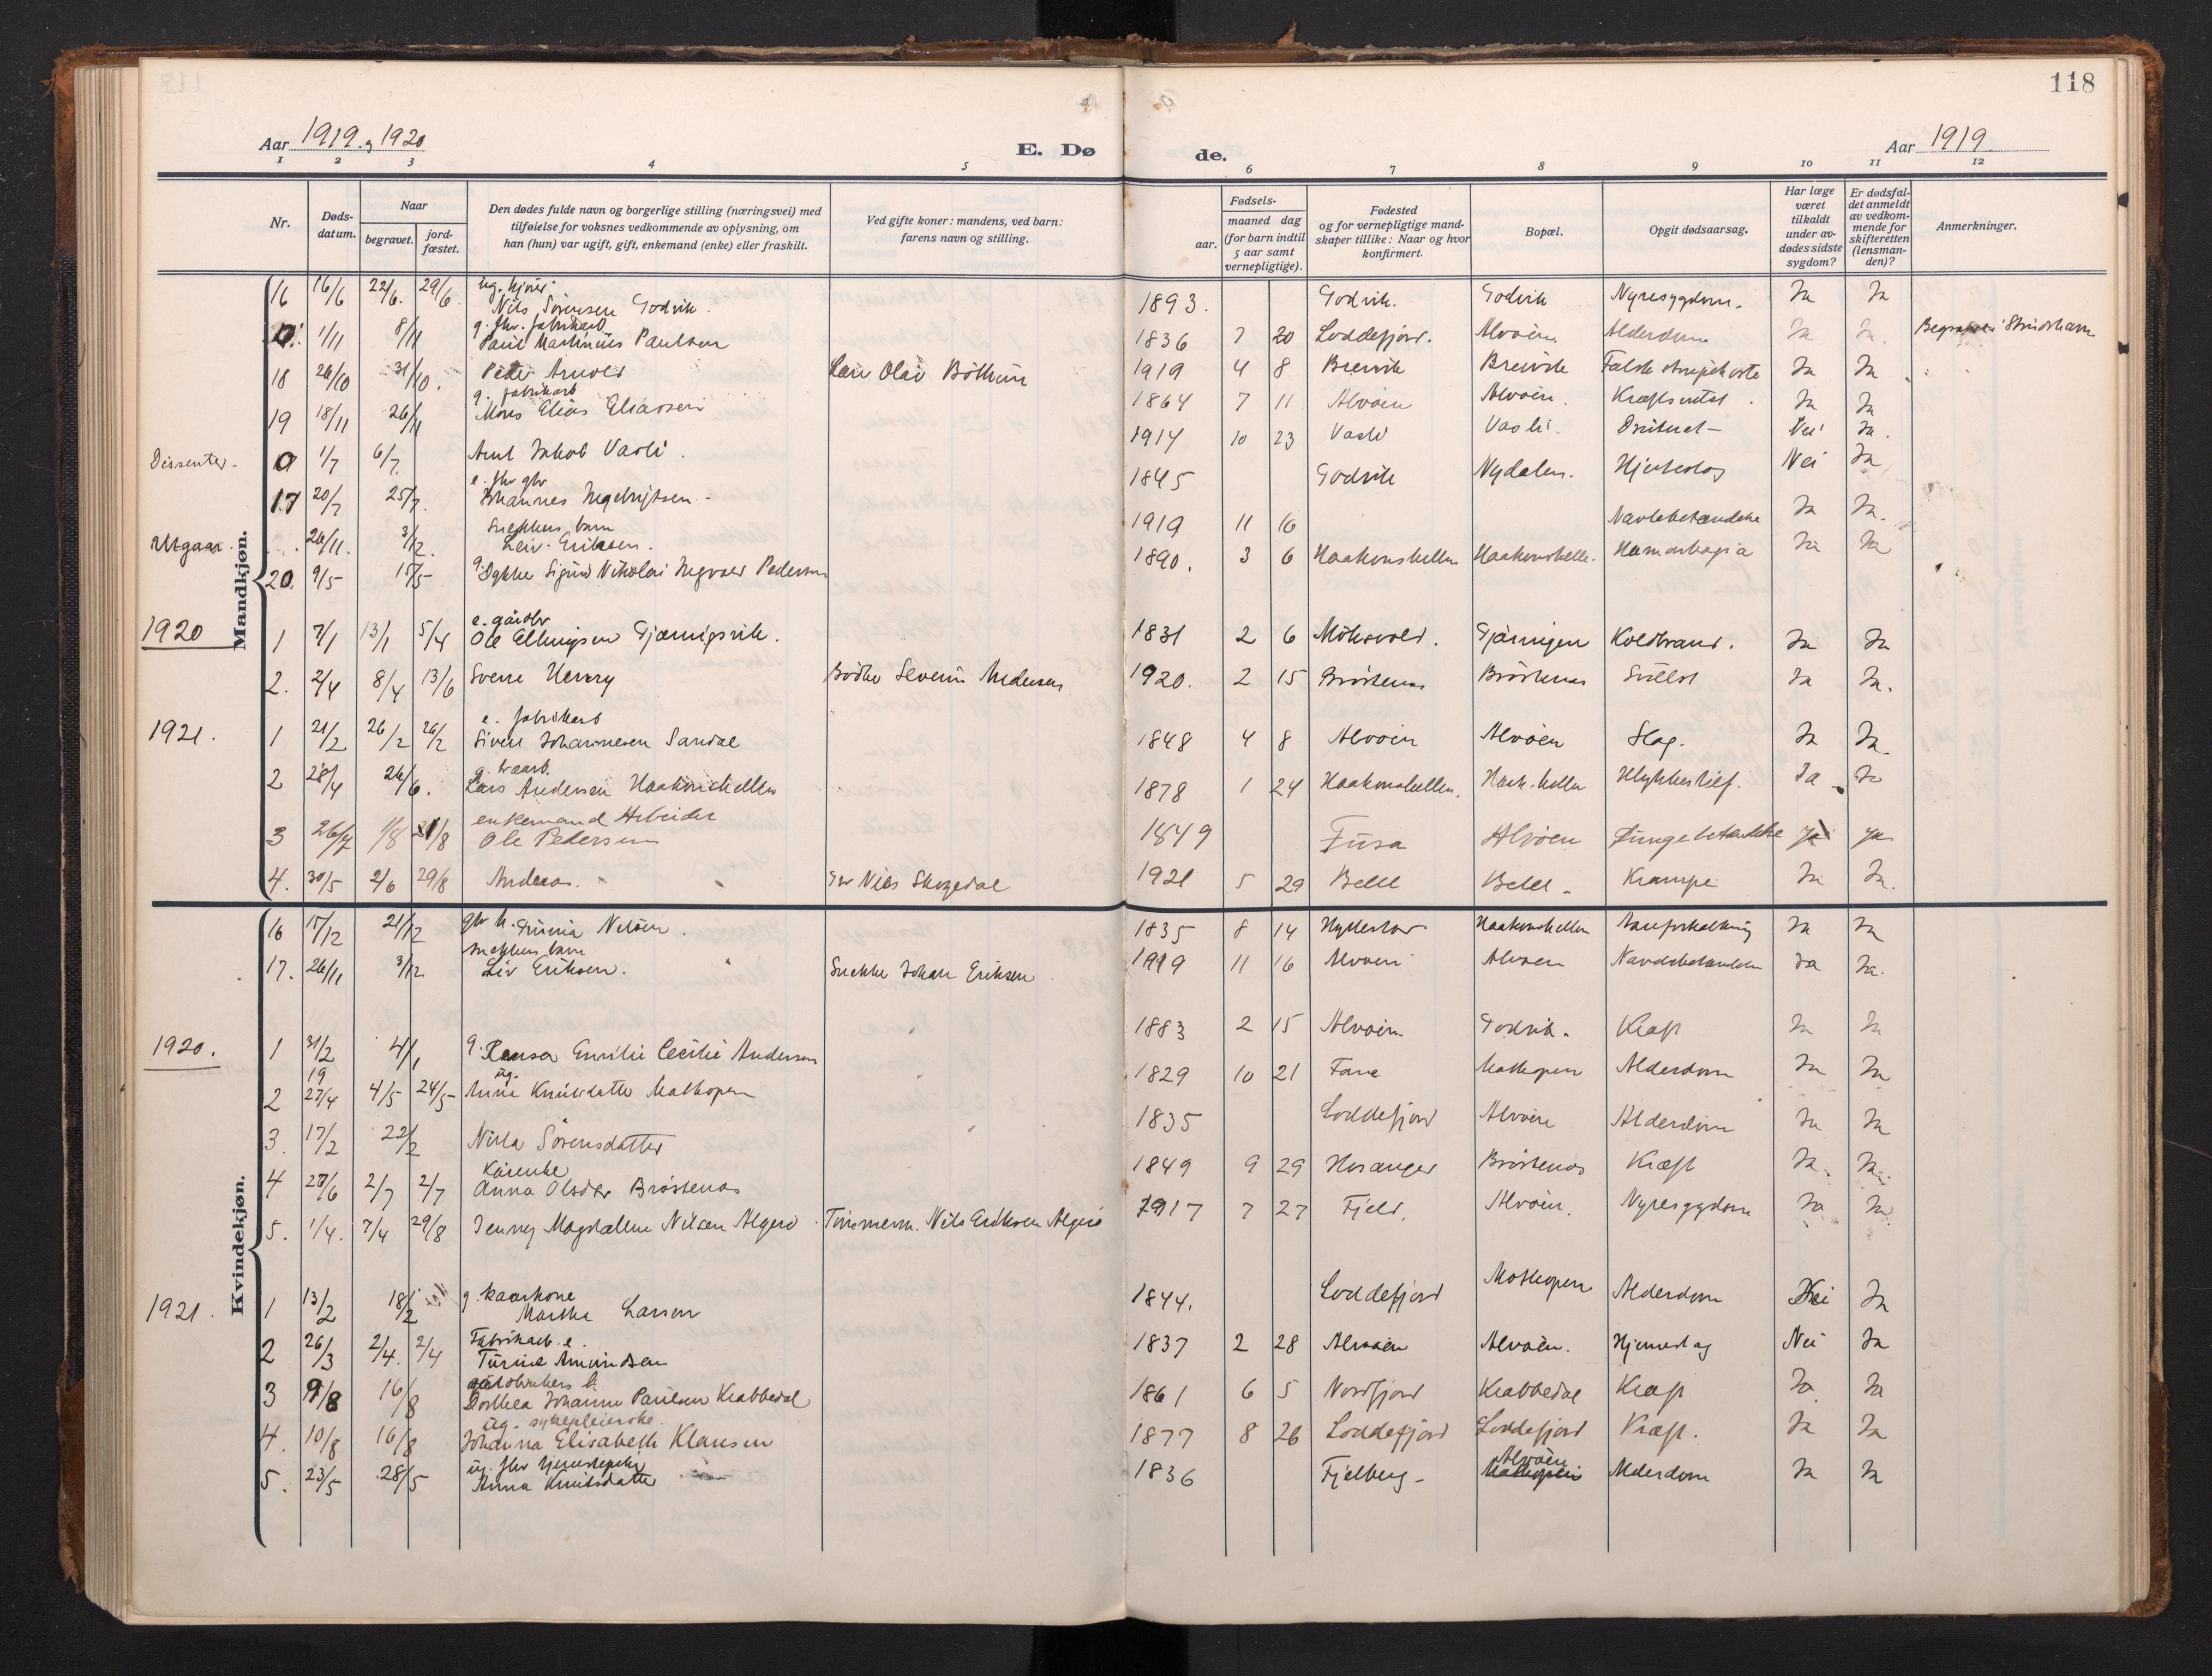 118
Aar 1919 og 1920
E. Døde.
Aar 1919
1 2 3 4 5 6 7 8 9 10 11 12
Nr.
Dødsdatum.
Naar
begravet.
jordfæstet.
Den dødes fulde navn og borgerlige stilling (næringsvei) med
tilføielse for voksnes vedkommende av oplysning, om
han (hun) var ugift, gift, enkemand (enke) eller fraskilt.
Ved gifte koner: mandens, ved barn:
farens navn og stilling.
Fødsels-
aar.
maaned dag
(for barn indtil
5 aar samt
vernepligtige).
Fødested
og for vernepligtige mand-
skaper tillike: Naar og hvor
konfirmert.
Bopæl.
Opgit dødsaarsag.
Har læge
været
tilkaldt
under av-
dødes sidste
sygdom?
Er dødsfal-
det anmeldt
av vedkom-
mende for
skifteretten
(lensman-
den)?
Anmerkninger.
Mandkjøn.
16 16/6 22/6 29/6 Nils Sørensen Godvik. 1893. Godvik. Godvik Nyresygdom. Ja Ja
1/11 8/11 g. fhv. fabrikarb Paul Martinius Paulsen 1836 7 20 Loddefjord. Alvøen Alderdom Ja Ja.
18 26/10 31/10. Peter Arnold Olav 1919 4 8 Breivik Breivik Falsk Ja Ja
19 18/11 26/11 g. fabrikarb Mons Elias Eliassen 1864 7 11 Alvøen Alvøen. Ja Ja
Dissenter. 1/7 6/7. Arnt Jakob Vasli. 1914 10 23 Vasli Vasli Druknet Nei Ja.
17 20/7 25/7. e. fhv gbr Johannes Ingebrigtsen. 1845 Godvik Nydalen. Hjerteslag Nei Ja
Utgaar. 26/11. 3/12. Snekkers barn Leiv Eriksen. 1919 11 16 Navlebetændelse Ja Ja.
20. 9/5 15/5 g. Dykker Sigurd Nikolai Ingvald Pedersen 1890. 3 6 Haakonshellen Haakonshelle. Ja Ja
1920
1 7/1 13/1 5/4 e. gårdbr Ole Ellingsen Gjærnigsvik. 1831 2 6 Gjärnigen Koldbrand. Ja Ja
2. 2/4 8/4 13/6 Sverre Henry Bødker Severin Andersen 1920. 2 15 Brøstenes Brøstenes Ja Ja.
1921.
1 21/2 26/2 26/2 e. fabrikarb Sivert Johannesen Sandal 1848 4 8 Alvøen Alvøen Slag. Ja Ja.
2 28/4 26/6. Lars Andersen Haakonshellen 1878 1 24 Haakonshellen. Haak.hellen Ulykkestilf. Ja Ja
3 26/7 1/8 21/8 enkemand Arbeider Ole Pedersen 1849 Fusa Alvøen Lungebetændelse Ja Ja
4. 30/5 2/6 29/8 Andreas. Nils Skogedal 1921 5 29 Krampe Ja Ja.
Kvindekjøn.
16 15/12 21/12 Nilsen. 1835 8 14 Haakonshellen Aareforkalkning Ja Ja
17. 26/11 3/12 Snekkers barn Liv Eriksen. Snekker Johan Eriksen 1919 11 16 Alvøen Alvøen Navlebetændelse Ja Ja.
1920.
1 31/12 19 4/1 g. Emilie Cecilie Andersen 1883 2 15 Alvøen Godvik. Kræft Ja Ja
2 27/4 4/5 24/5 ug. Anna Knudsdatter Mathopen 1829 10 21 Fane Mathopen Alderdom Ja Ja
3. 17/2 22/2 Nilla Sørensdatter 1835 Loddefjord Alvøen Alderdom Ja Ja
4 27/6 2/7 2/7 Kårenke Anna Olsdtr Brøstenes 1849 9 29 Hosanger Brøstenes Kræft Ja. Ja.
5. 1/4. 7/4 29/8 Jenny Magdalene Nilsen Algerø Tømmerm. Nils Eriksen Algerø 1917 7 27 Fjeld. Alvøen. Nyresygdom Ja Ja
1921.
1 13/2 18/2 g. kaarkone Martha Larsen 1844. Loddefjord Mathopen Alderdom Nei Ja
2 26/3 2/4. 2/4 Fabrikarb. e. Turine Amundsen 1837 2 28 Alvøen Alvøen. Hjerneslag Nei Ja
3 9/8 16/8 gårdbrukers h. Dorthea Johanne Paulsen Krabbedal 1861 6 5 Nordfjord Krabbedal Kræft Ja Ja
4. 10/8 16/8 ug. sykepleierske. Johanna Elisabeth Klausen 1877 8 26 Loddefjord Loddefjord Kræft. Ja Ja
5. 23/5 28/5 Anna Knutsdatter 1836 Fjelberg Alvøen Mathopen Alderdom Ja Ja